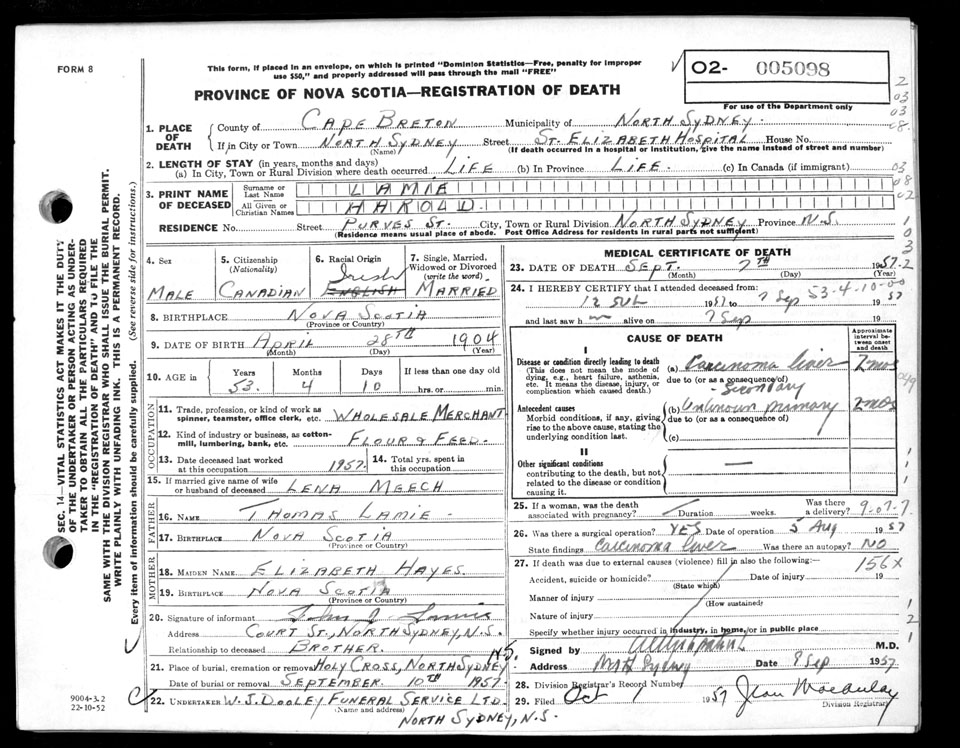 FORM 8
This form, if placed in an envelope, on which is printed "Dominion Statistics—Free, penalty for improper
use $50," and properly addressed will pass through the mail "FREE"
O2- 005098
For use of the Department only
PROVINCE OF NOVA SCOTIA—REGISTRATION OF DEATH
1. PLACE OF DEATH County of CAPE BRETON Municipality of NORTH SYDNEY.
If in City or Town NORTH SYDNEY Street ST. ELIZABETH HOSPITAL House No.
(Name) (If death occurred in a hospital or institution, give the name instead of street and number)
2. LENGTH OF STAY (in years, months and days)
(a) In City, Town or Rural Division where death occurred LIFE (b) In Province LIFE. (c) In Canada (if immigrant)
3. PRINT NAME OF DECEASED Surname or Last Name LAMIE
All Given or Christian Names HAROLD
RESIDENCE No. Street PURVES ST. City, Town or Rural Division NORTH SYDNEY Province N.S.
(Residence means usual place of abode. Post Office Address for residents in rural parts not sufficient)
4. Sex MALE
5. Citizenship (Nationality) CANADIAN
6. Racial Origin Irish ENGLISH
7. Single, Married, Widowed or Divorced (write the word) MARRIED
8. BIRTHPLACE NOVA SCOTIA
(Province or Country)
9. DATE OF BIRTH APRIL 28TH 1904
(Month) (Day) (Year)
10. AGE in Years Months Days If less than one day old
53. 4 10 hrs. or min.
OCCUPATION
11. Trade, profession, or kind of work as spinner, teamster, office clerk, etc. WHOLESALE MERCHANT
12. Kind of industry or business, as cotton-mill, lumbering, bank, etc. FLOUR & FEED.
13. Date deceased last worked at this occupation 1957. 14. Total yrs. spent in this occupation
15. If married give name of wife or husband of deceased LENA MEECH
FATHER
16. NAME THOMAS LAMIE
17. BIRTHPLACE NOVA SCOTIA
(Province or Country)
MOTHER
18. MAIDEN NAME ELIZABETH HAYES.
19. BIRTHPLACE NOVA SCOTIA
(Province or Country)
20. Signature of informant John J. Lamie
Address COURT ST., NORTH SYDNEY, N.S.
Relationship to deceased BROTHER.
21. Place of burial, cremation or removal HOLY CROSS, NORTH SYDNEY N.S.
Date of burial or removal SEPTEMBER 10TH 1957.
22. UNDERTAKER W.J. DOOLEY FUNERAL SERVICE LTD.
(Name and address)
NORTH SYDNEY, N.S.
MEDICAL CERTIFICATE OF DEATH
23. DATE OF DEATH SEPT. 7TH 1957
(Month) (Day) (Year)
24. I HEREBY CERTIFY that I attended deceased from:
1957 to 7 Sep 1957
53-4-10-00
and last saw h m alive on 7 Sep 19
CAUSE OF DEATH
Approximate interval between onset and death
I
Disease or condition directly leading to death (a) Carcinoma liver 2 mos
(This does not mean the mode of dying, e.g., heart failure, asthenia, etc. It means the disease, injury, or complication which caused death.)
due to (or as a consequence of)
Secondary
Antecedent causes (b) Unknown primary 2 mos
Morbid conditions, if any, giving rise to the above cause, stating the underlying condition last.
due to (or as a consequence of)
(c)
II
Other significant conditions —
contributing to the death, but not related to the disease or condition causing it.
25. If a woman, was the death associated with pregnancy? Duration weeks. Was there a delivery? 9-07-7
26. Was there a surgical operation? YES Date of operation 5 Aug 1957
State findings Carcinoma liver Was there an autopsy? NO
27. If death was due to external causes (violence) fill in also the following: 156X
Accident, suicide or homicide? Date of injury 19
(State which)
Manner of injury
(How sustained)
Nature of injury
Specify whether injury occurred in industry, in home, or in public place
Signed by M.D.
Address Nth Sydney Date 9 Sep 1957
28. Division Registrar's Record Number
29. Filed Oct 1 1957 Jean Macaulay
Division Registrar
SEC. 14—VITAL STATISTICS ACT MAKES IT THE DUTY
OF THE UNDERTAKER OR PERSON ACTING AS UNDER-
TAKER TO OBTAIN ALL THE PARTICULARS REQUIRED
IN THE "REGISTRATION OF DEATH" AND TO FILE THE
SAME WITH THE DIVISION REGISTRAR WHO SHALL ISSUE THE BURIAL PERMIT.
WRITE PLAINLY WITH UNFADING INK. THIS IS A PERMANENT RECORD.
Every item of information should be carefully supplied. (See reverse side for instructions.)
9004-3.2
22-10-52